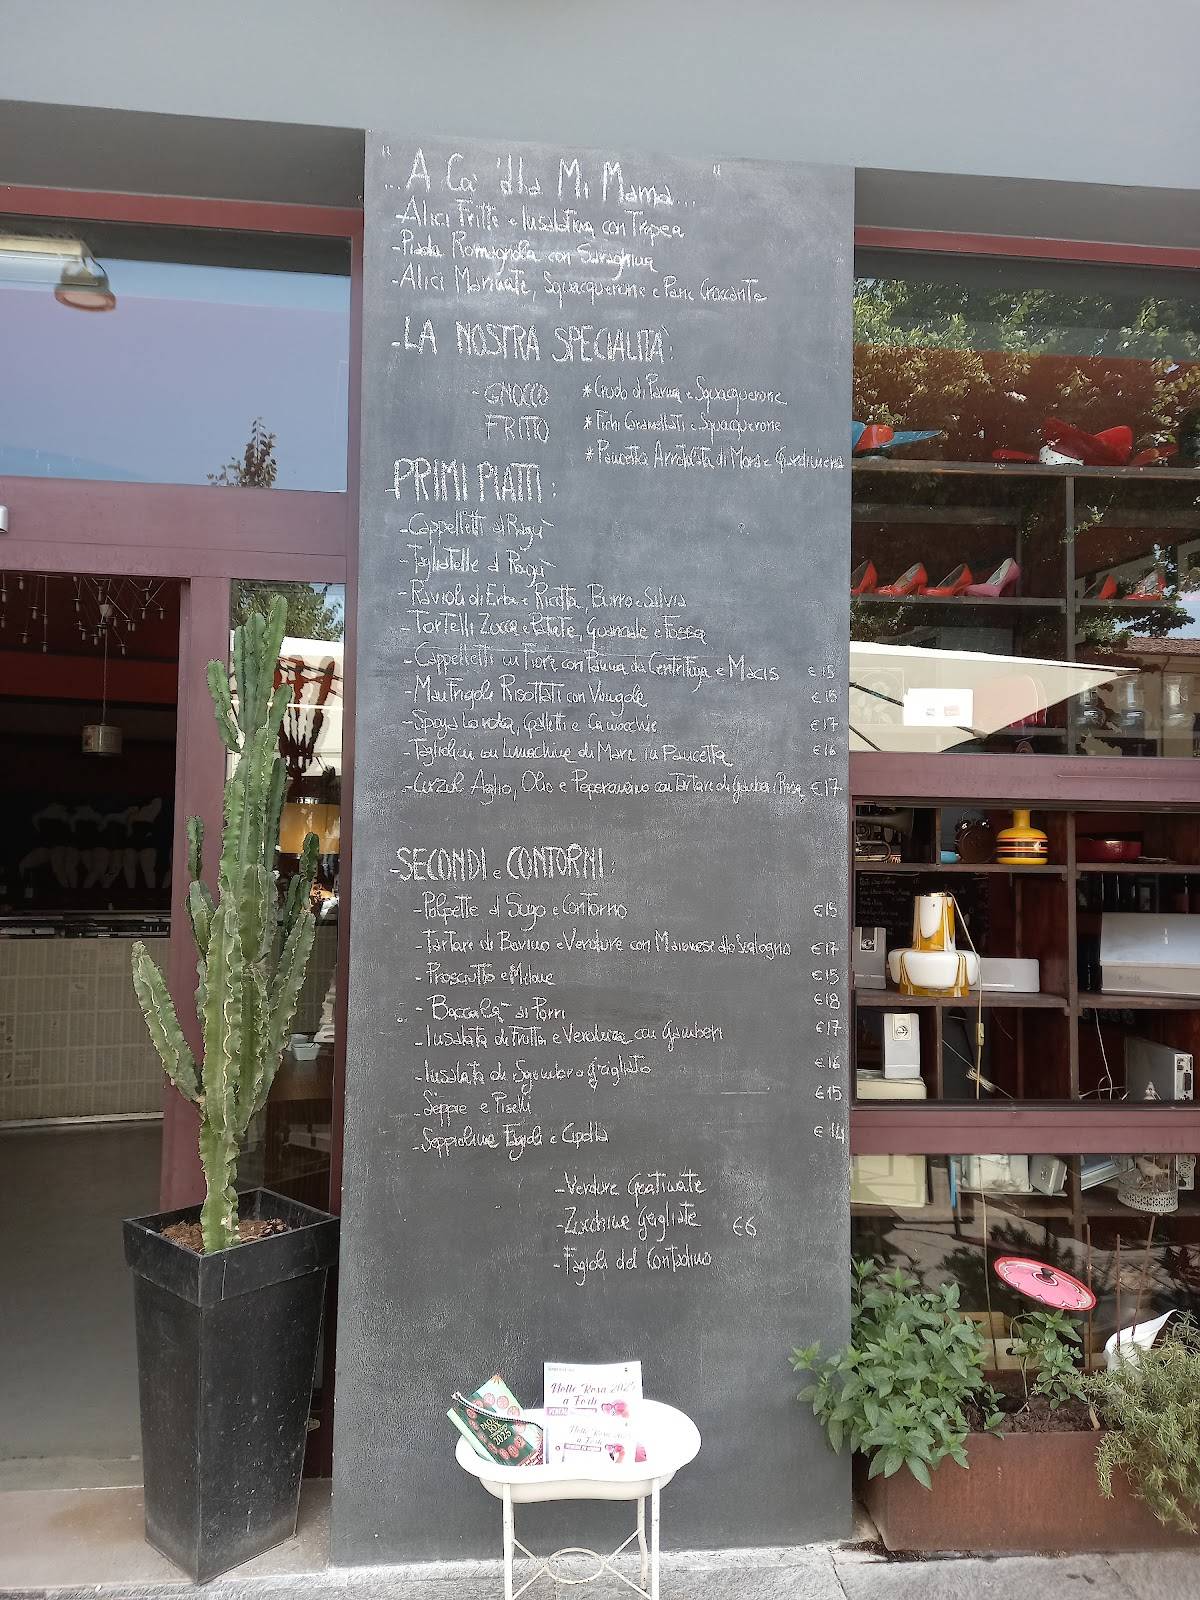 "...A Ca' 'dla Mi Mama..."
-Alici Fritte e Insalatina con Tropea
-Piada Romagnola con Saraghina
-Alici Marinate, Squacquerone e Pane Croccante
-LA NOSTRA SPECIALITÀ:
-GNOCCO FRITTO
*Crudo di Parma e Squacquerone
*Fichi Caramellati e Squacquerone
*Pancetta Arrotolata di Mora e Giardiniera
-PRIMI PIATTI:
-Cappelletti al Ragù
-Tagliatelle al Ragù
-Ravioli di Erbe e Ricotta, Burro e Salvia
-Tortelli Zucca e Patate, Guanciale e Fossa
-Cappelletti in Fiore con Panna da Centrifuga e Macis €15
-Manfrigoli Risottati con Vongole €15
-Spoja Lorda, Galletti e Canocchie €17
-Tagliolini con Lumachine di Mare in Pancetta €16
-Curzul Aglio, Olio e Peperoncino con Tartare di Gamberi Rosa €17
-SECONDI e CONTORNI:
-Polpette al Sugo e Contorno €15
-Tartare di Bovino e Verdure con Maionese allo Scalogno €17
-Prosciutto e Melone €15
-Baccalà ai Porri €18
-Insalata di Frutta e Verdura con Gamberi €17
-Insalata di Sgombro Grigliato €16
-Seppie e Piselli €15
-Seppioline Fagioli e Cipolla €14
-Verdure Gratinate
-Zucchine Grigliate €6
-Fagioli del Contadino
Notte Rosa 2025
a Forlì
Notte Rosa
a Forlì
2025